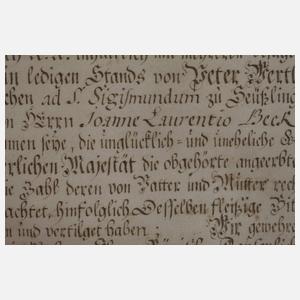 in ledigen Stands von Peter Wertl
chen ad S. Sigismundum zu Seüßling
n Herrn Joanne Laurentio Beck
men seÿe, die unglücklich= und uneheliche G
rlichen Majestät die obgehörte angeerbt
ie Zahl deren von Vatter und Mutter rech
achtet, hinfolglich Desselben fleißige Bit
n und vertilget haben; Wir gewehre